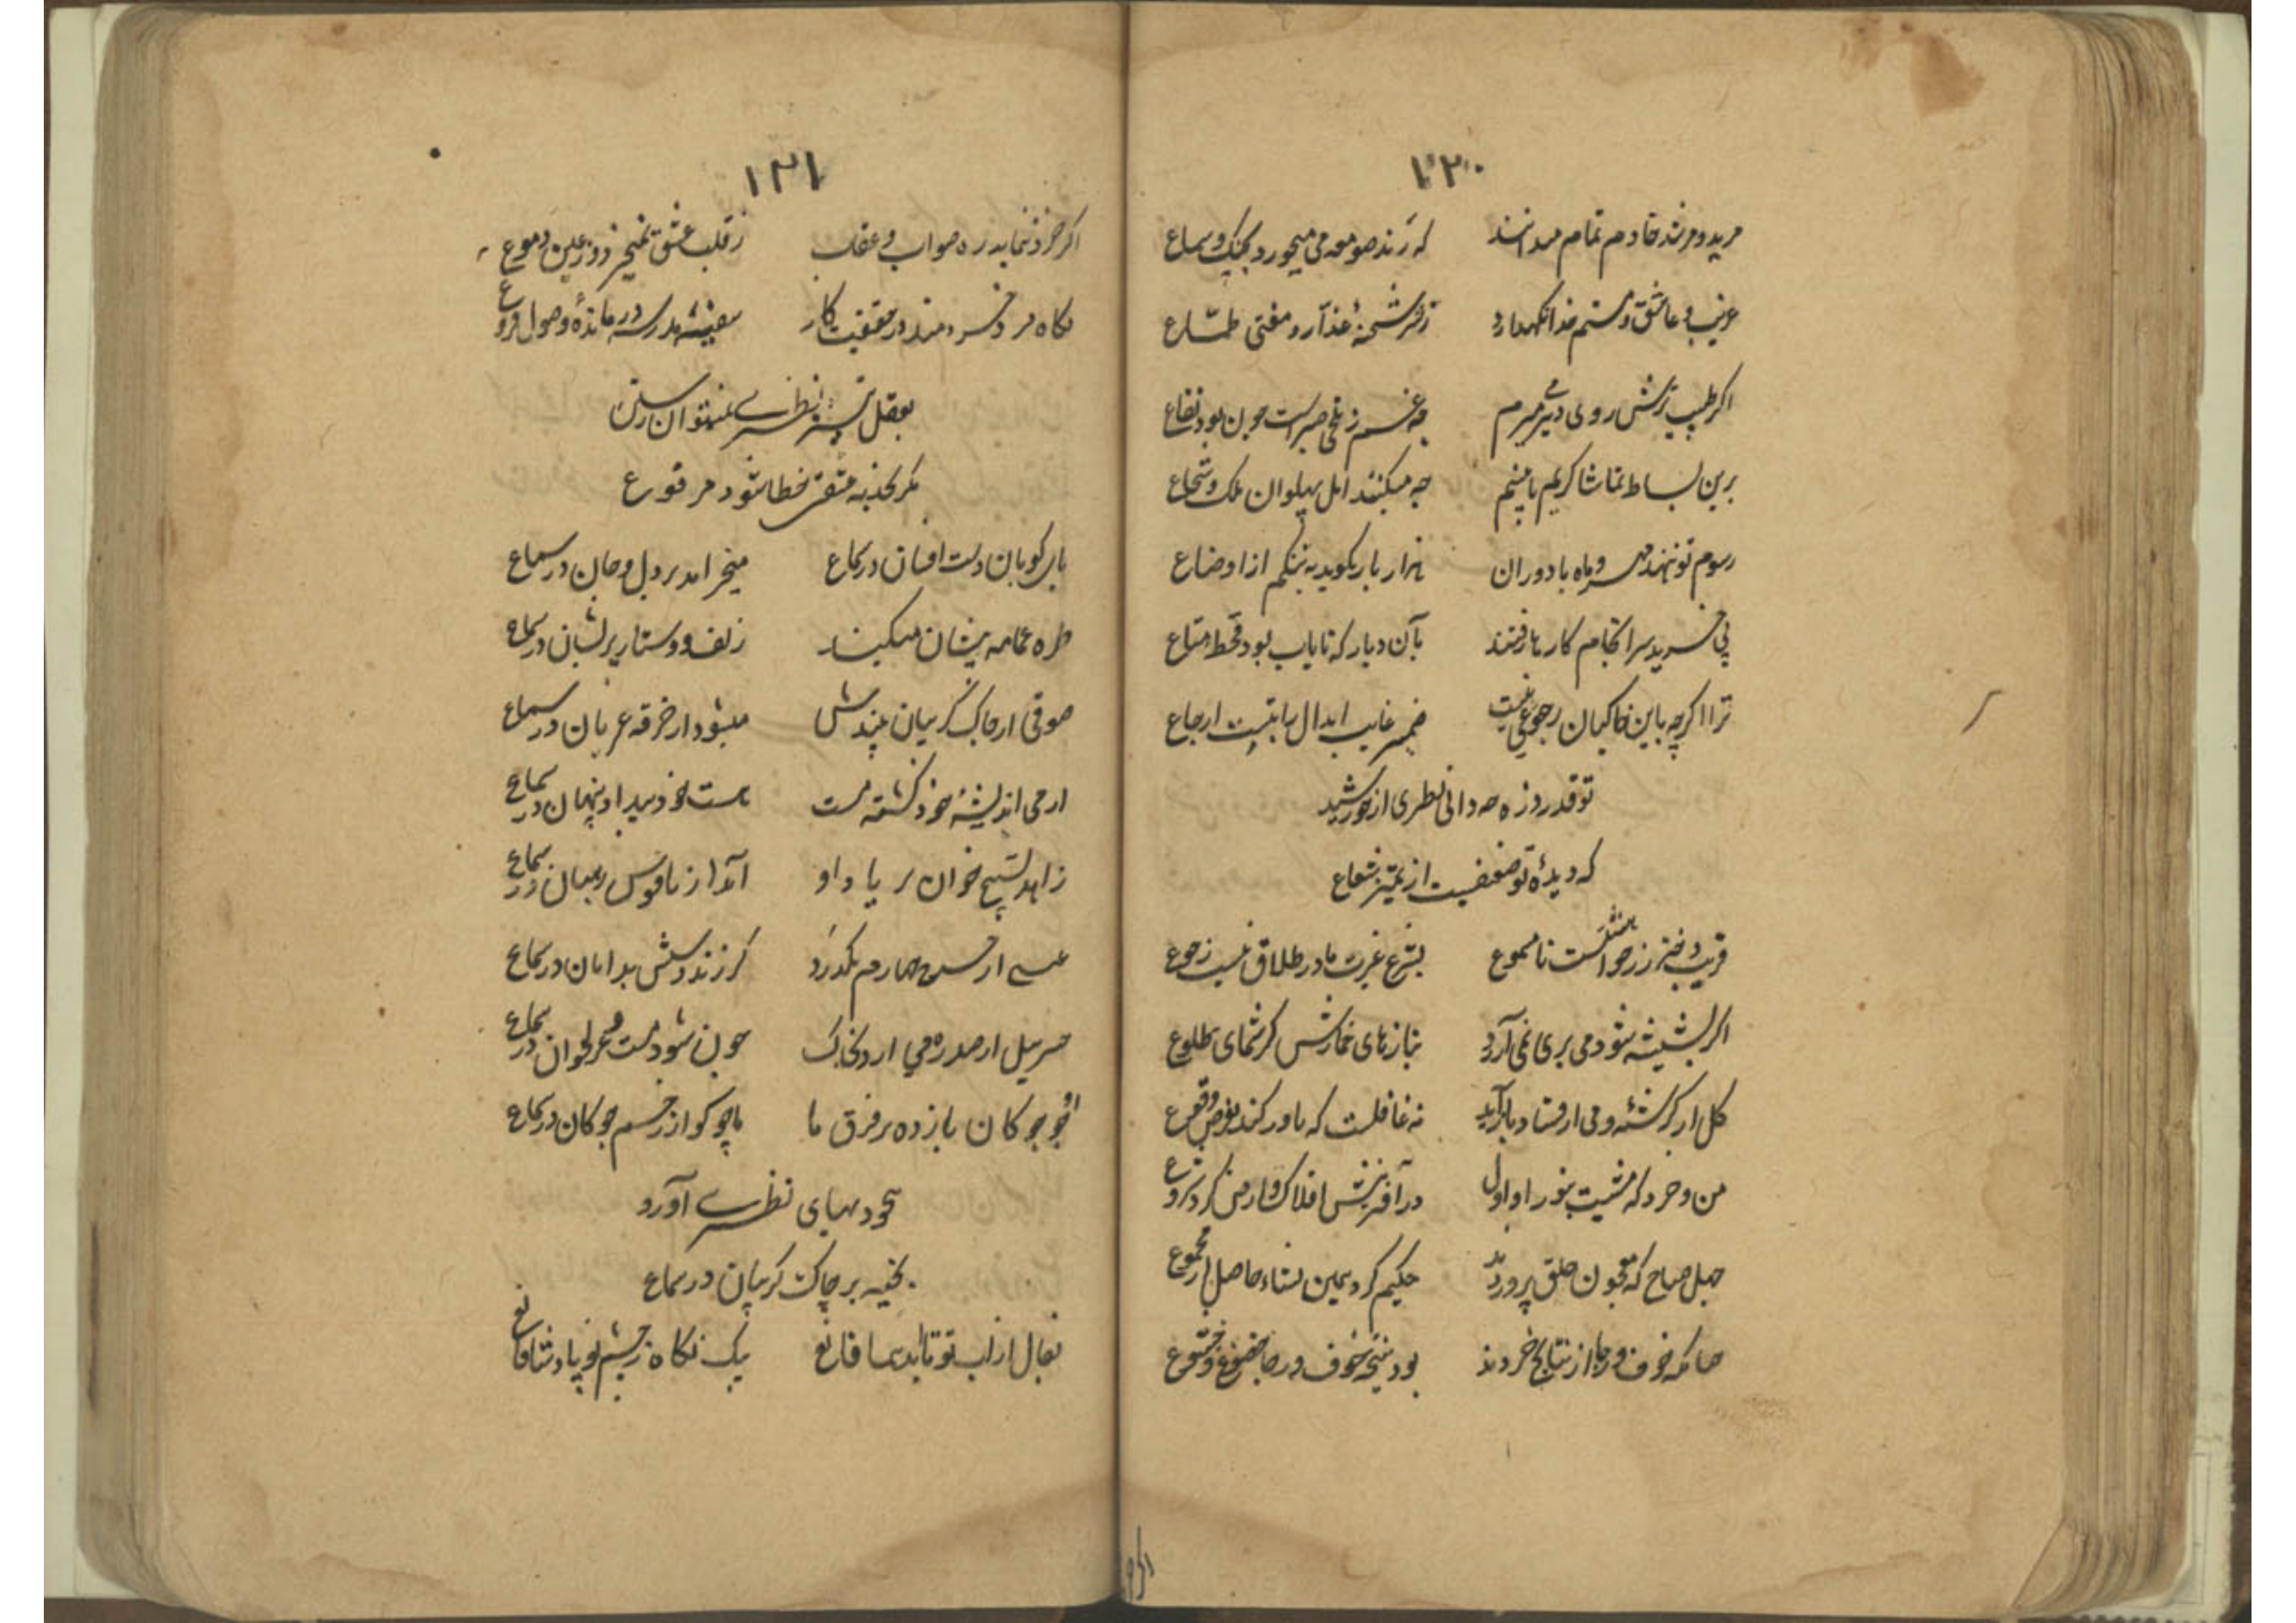 ۱۲۰
مرید و مرشد و خادم تمام میدانند که رند صومعه می میخورد بچنگ و سماع
غریب و عاشق و مستم خدا نگهدارد ز شر شحنهٔ غدار و مفتی طماع
اگر طبیب ترش روی دیر میرم چه غم ز تلخی صبر است چون بود نفاع
برین بساط تماشا کریم تا بینیم چه میکنند اهل پهلوان ملک و شجاع
رسوم تو نهند مهر و ماه با دوران هزار بار بگوید به تنگم از اوضاع
پی خرید سرانجام کار ما رفتند بآن دیار که نایاب بود و قحط متاع
ترا اگرچه باین خاکیان رجوعی نیست ضمیر غایب ابدال را بتست ارجاع
تو قدر روزه چه دانی نظیری از خورشید
که دیدهٔ تو ضعیفست از تمیز شعاع
فریب دختر رز خواهشست نامسموع بشرع غیرت ما در طلاق نیست رجوع
اگر بشیشه شود می پری نمی آرد بنازهای خمارش کرشمهای طلوع
گل ار کرشمه و می ار فساد باز آید نه غافلست که باور کند بفرض وقوع
من و خرد که مشیت بنور او اول در آفرینش افلاک و ارض کرد شروع
چهل صباح که معجون خلق پروردند حکیم کرد همین نشاء حاصل از مجموع
چنانکه خوف و رجا از نتایج خردند بود نتیجه خوف و رجا خضوع و خشوع
۱۲۱
اگر خرد ننماید ره صواب و عقاب ز قلب عشق نمیخیزد و ز عین دموع
نگاه مرد خردمند در حقیقت کار سفینه مدرسه درماندهٔ وصول و فروع
بعقل تیز نظیری نمیتوان رستن
مگر بجذبه عشقش خطا شود مرفوع
پای کوبان دست افشان در سماع میخرامد بر دل و جان در سماع
طره عمامه پریشان میکند زلف و دستار پریشان در سماع
صوفی از چاک گریبان بیندش میشود از خرقه عریان در سماع
از می اندیشهٔ خود گشته مست هست خود پیدا و پنهان در سماع
زاهد تسبیح خوان بر یاد او آید از ناقوس رهبان در سماع
عیسی از چرخ چهارم بگذرد گر زند دستش بدامان در سماع
جبرئیل از سدره می آرد بخاک چون شود مست غزلخوان در سماع
او چو چوکان باز زده بر فرق ما ما چو کو از زخم چوکان در سماع
خود بهای نظیری آورد
بخیه بر چاک گریبان در سماع
نهال از لب تو تا بدعا قانع بیک نگاه ز چشم تو پادشا قانع